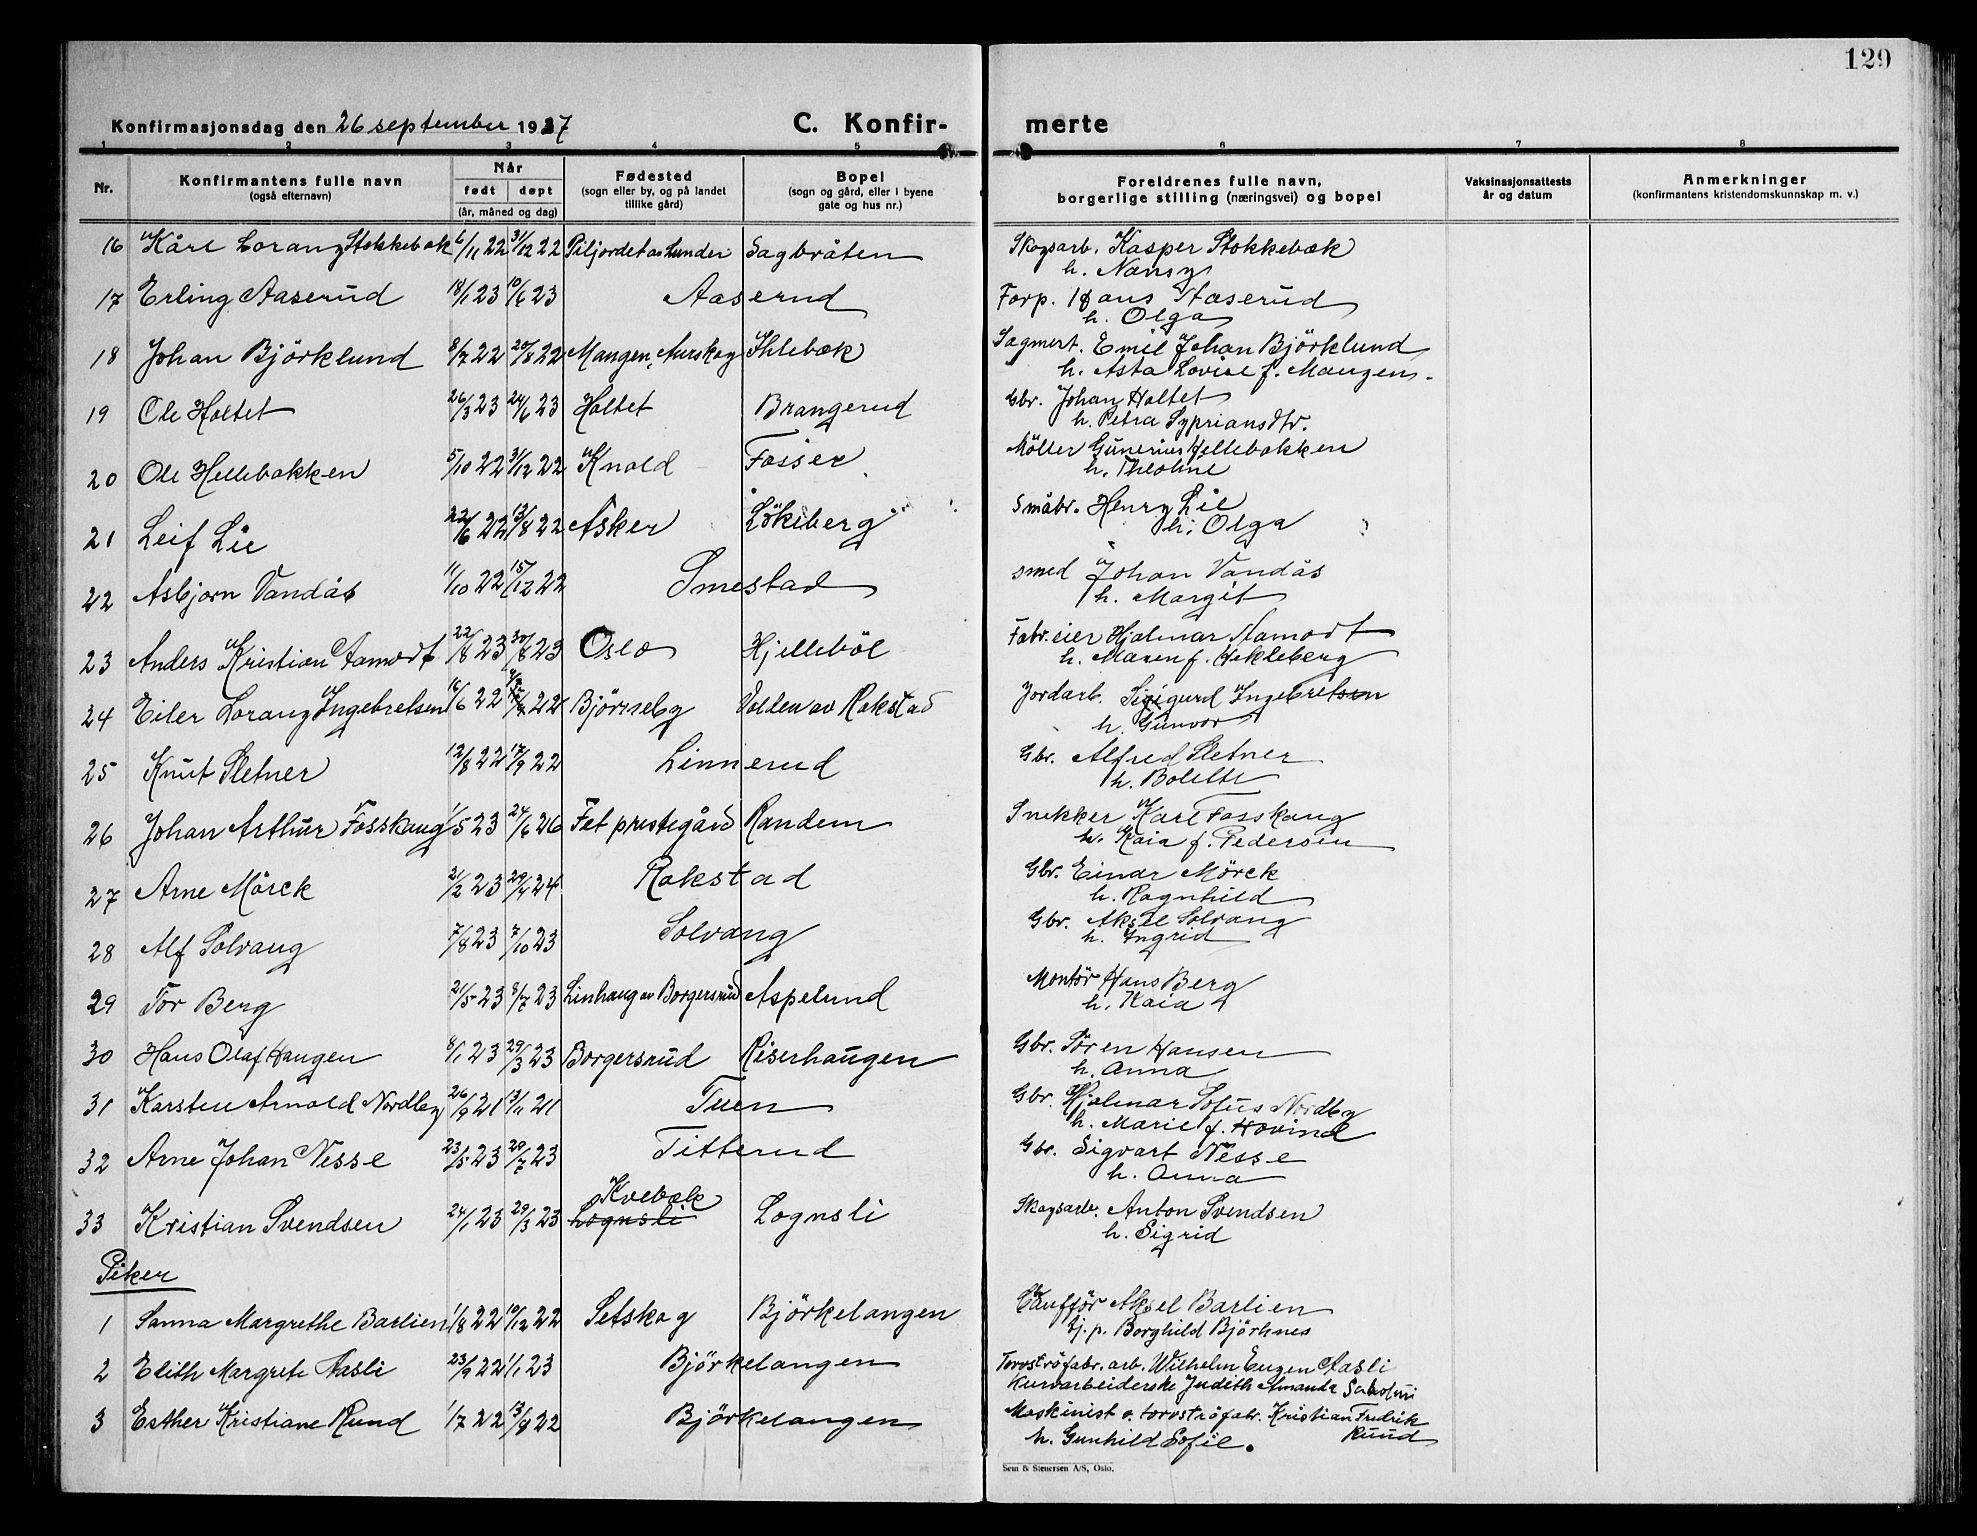 129
Konfirmasjonsdag den 26 september 1937 C. Konfir- merte
1 2 3 4 5 6 7 8
Nr. Konfirmantens fulle navn (også efternavn) Når født døpt (år, måned og dag) Fødested (sogn eller by, og på landet tillike gård) Bopel (sogn og gård, eller i byene gate og hus nr.) Foreldrenes fulle navn, borgerlige stilling (næringsvei) og bopel Vaksinasjonsattests år og datum Anmerkninger (konfirmantens kristendomskunnskap m. v.)
16 Kåre Lorang Stokkebæk 6/11 22 31/12 22 Piljordet av Lunder Sagbråten Skogsarb. Kasper Stokkebæk
h. Nansy
17 Erling Aaserud 18/1 23 10/6 23 Aaserud Forp. Hans Aaserud
h. Olga
18 Johan Björklund 8/7 22 20/8 22 Mangen, Aurskog Ihlebæk Sagmest. Emil Johan Björklund
h. Asta Lovise f. Mangen.
19 Ole Holtet 26/3 23 24/6 23 Holtet Brangerud Gbr. Johan Holtet
h. Petra Sypriansdtr.
20 Ole Hellebakken 5/10 22 31/12 22 Knold Fosser Möller Gunerius Hellebakken
h. Theoline
21 Leif Lie 22/6 22 13/8 22 Asker Lökeberg Småbr. Henry Lie
h. Olga
22 Asbjorn Vandås 11/10 22 15/12 22 Smestad smed Johan Vandås
h. Margit
23 Anders Kristian Aamodt 22/8 23 30/8 23 Oslo Hjelleböl Fabr.eier Hjalmar Aamodt
h. Maren f. Hekleberg
24 Eiler Lorang Ingebretsen 16/6 22 22 Björneby Volden av Rakstad Jordarb. Sigurd Ingebretsen
h. Gunvor
25 Knut Sletner 12/8 22 17/9 22 Linnerud Gbr. Alfred Sletner
h. Bolette
26 Johan Arthur Fosskaug 1/5 23 24/6 26 Fet prestegård Randem Snekker Karl Fosskaug
h. Kaia f. Pedersen
27 Arne Mörck 21/2 23 29/4 24 Rakstad Gbr. Einar Mörck
h. Ragnhild
28 Alf Solvang 7/8 23 7/10 23 Solvang Gbr. Aksel Solvang
h. Ingrid
29 Tor Berg 21/5 23 8/7 23 Linhaug av Borgersrud Aspelund Montör Hans Berg
h. Kaia
30 Hans Olaf Haugen 8/1 23 29/3 23 Borgersrud Riserhaugen Gbr. Sören Hansen
h. Anna
31 Karsten Arnold Nordby 26/9 21 13/11 21 Tuen Gbr. Hjalmar Sofus Nordby
h. Marie f. Hovind
32 Arne Johan Nesse 23/5 23 29/7 23 Titterud Gbr. Sigvart Nesse
h. Anna
Kvebæk
33 Kristian Svendsen 24/1 23 29/3 23 Lognsli Lognsli Skogsarb. Anton Svendsen
h. Sigrid
Piker
1 Sanna Margrethe Barlien 1/8 22 10/12 22 Setskog Björkelangen Sjafför Aksel Barlien
Borghild Björknes
2 Edith Margrete Aasli 23/9 22 1/1 23 Björkelangen Torvströfabr. arb. Wilhelm Eugen Aasli
Kurvarbeiderske Judith Amanda
3 Esther Kristiane Ruud 1/7 22 13/8 22 Björkelangen Maskinist v. torvströfabr. Kristian Fredrik Ruud
h. Gunhild Sofie.
Sem & Stenersen A/S, Oslo.